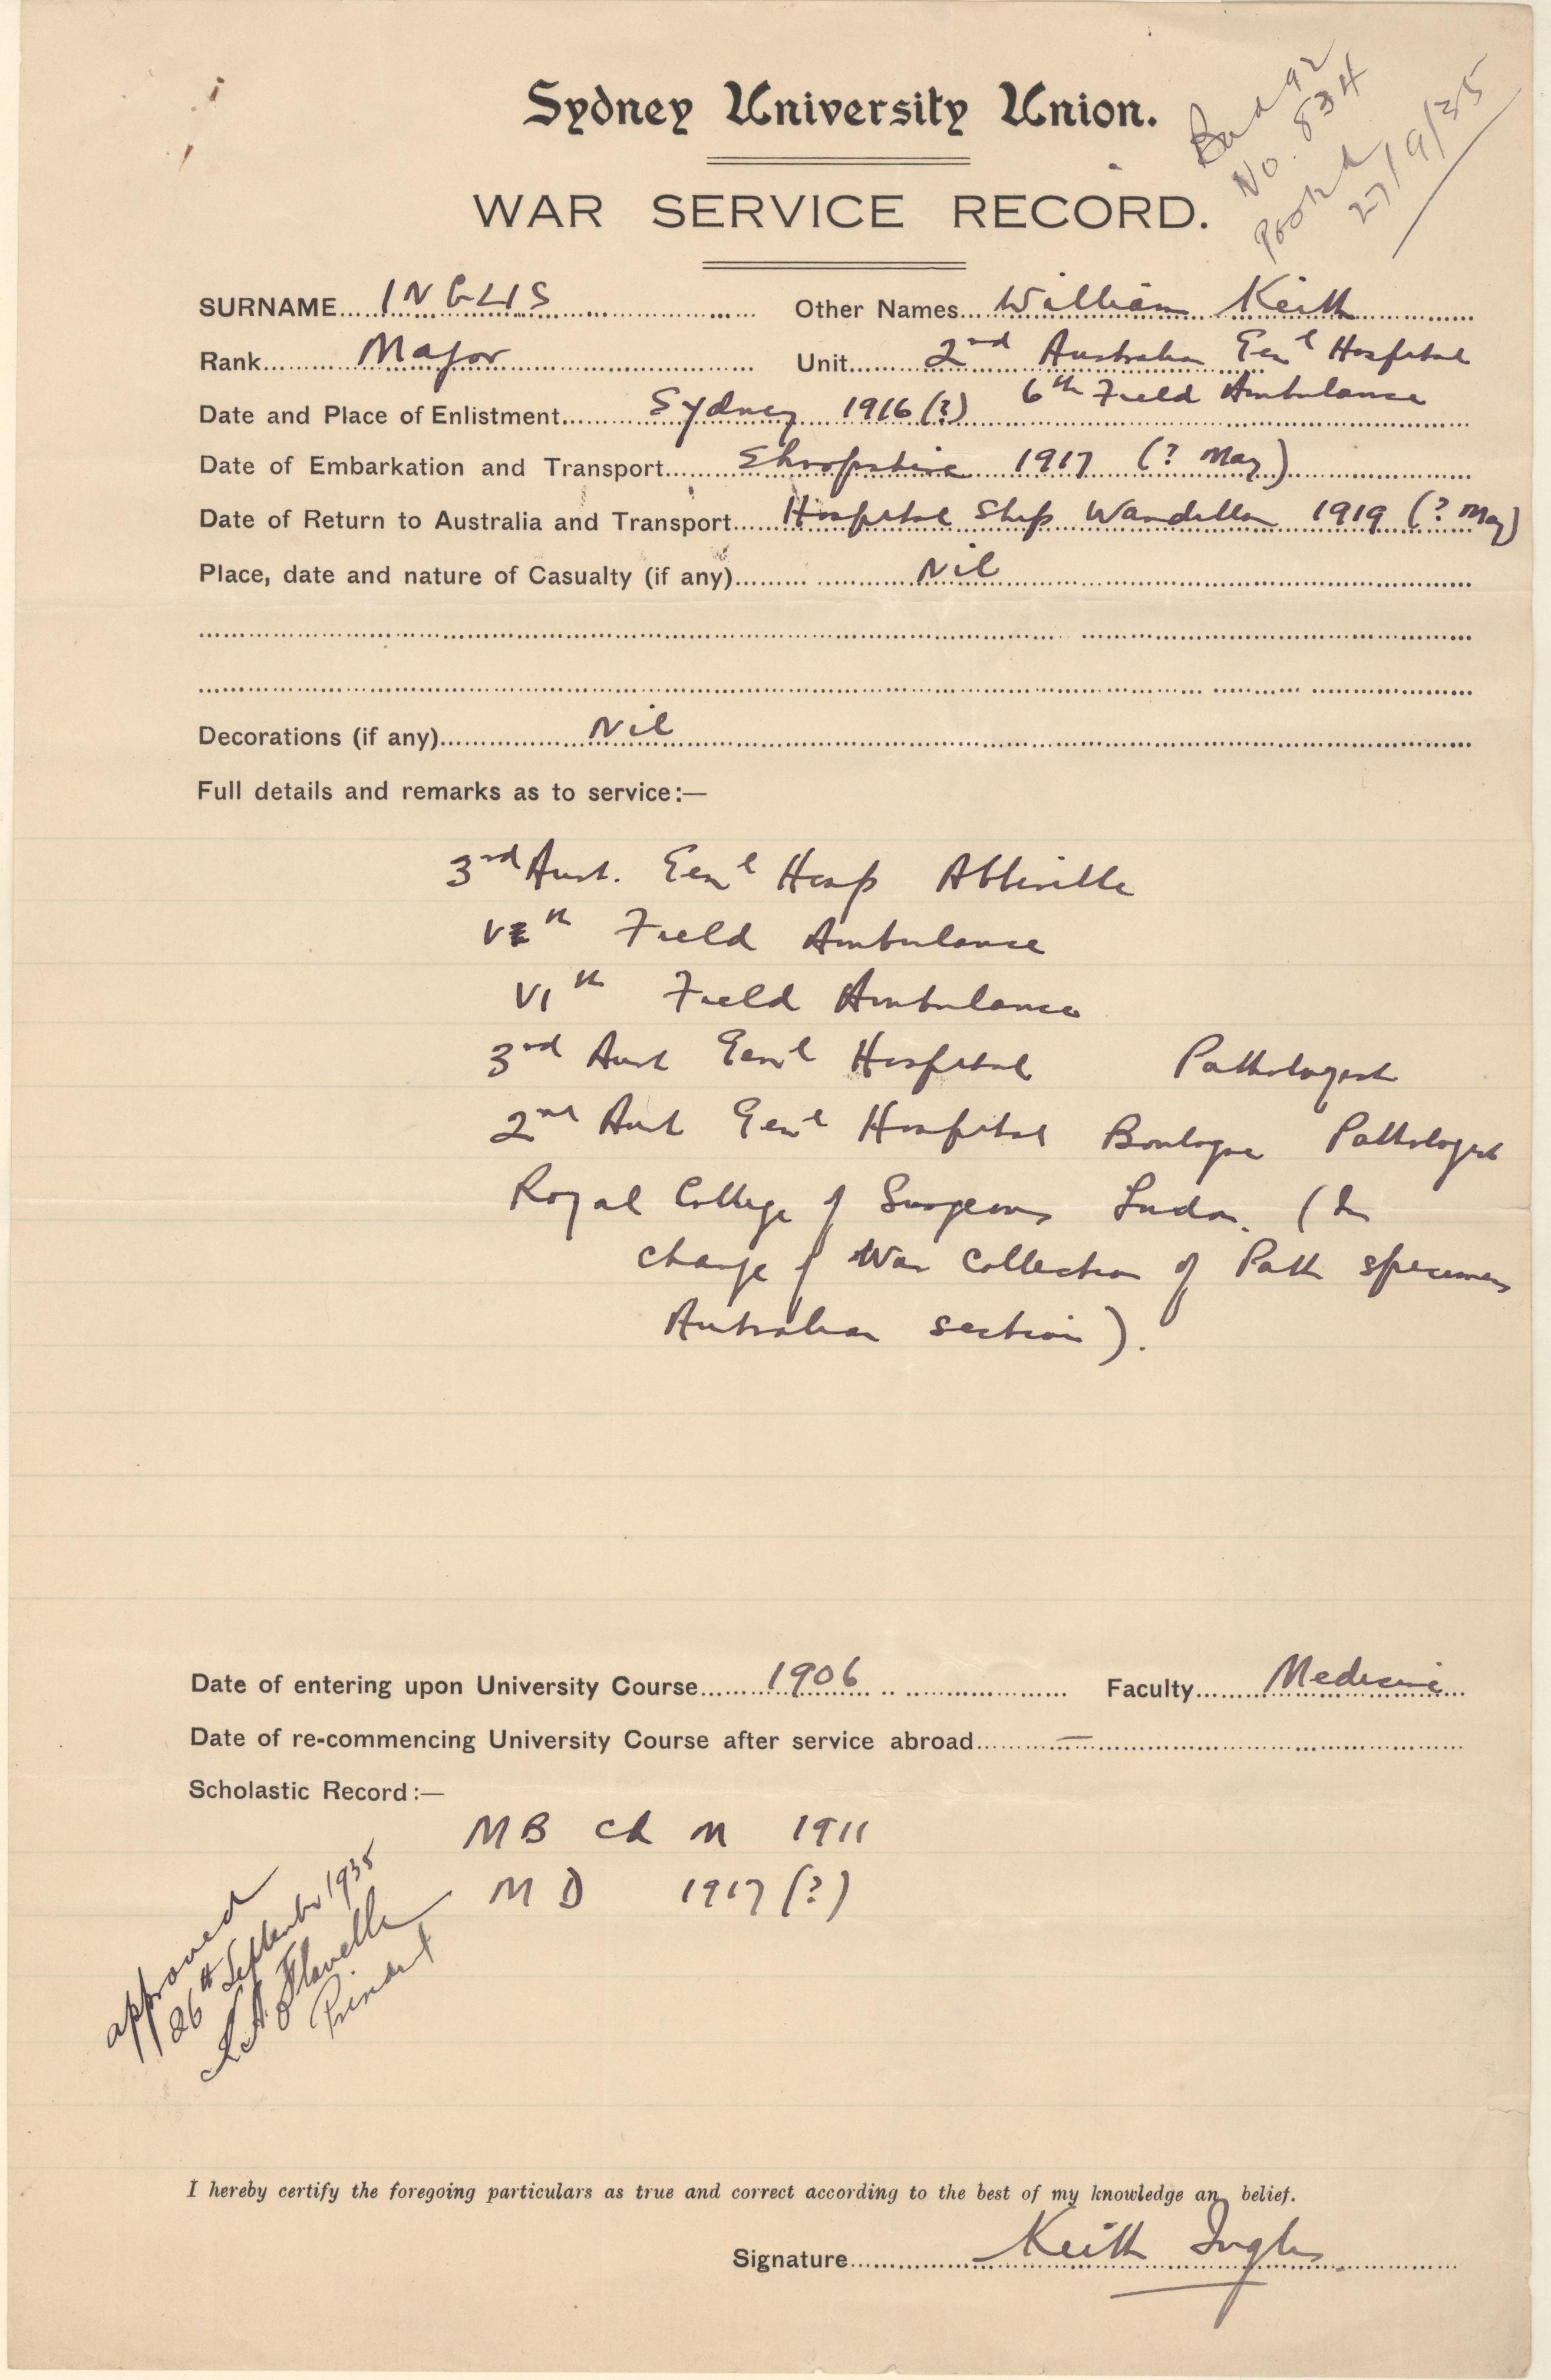 Sydney University Union.
WAR SERVICE RECORD.
Badge
No. 834
Posted
27/9/35
SURNAME INGLIS Other Names William Keith
Rank Major Unit 2nd Australian Genl Hospital
6th Field Ambulance
Date and Place of Enlistment Sydney 1916 (?)
Date of Embarkation and Transport Shropshire 1917 (? May)
Date of Return to Australia and Transport Hospital Ship Wandilla 1919 (? May)
Place, date and nature of Casualty (if any) Nil
Decorations (if any) Nil
Full details and remarks as to service:—
3rd Aust. Genl Hosp Abbeville
th Field Ambulance
VIth Field Ambulance
3rd Aust Genl Hospital Pathologist
2nd Aust Genl Hospital Boulogne Pathologist
Royal College of Surgeons London. (In
charge of War Collection of Path specimens
Australian section).
Date of entering upon University Course 1906 Faculty Medicine
Date of re-commencing University Course after service abroad —
Scholastic Record:—
MB Ch M 1911
MD 1917 (?)
approved
26th September 1935
Flavelle
I hereby certify the foregoing particulars as true and correct according to the best of my knowledge an belief.
Signature Keith Inglis